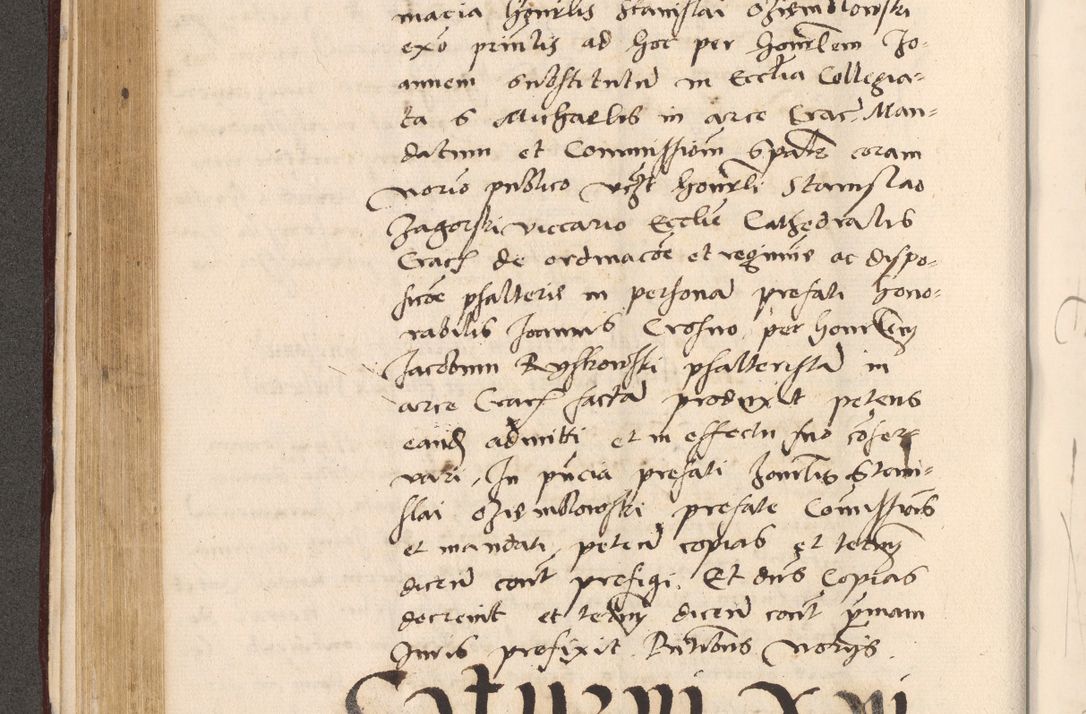 macia honrlis Stanislai Oziemblowski
exo printis ad hoc per honrlem Jo-
annem substitutu in Ecclia Collegia-
ta S Michaelis in arce Crac. Man-
datum et Commissiom coram
norio publico honrli Stanislao
Zagorski viccario Ecclie Cathedralis
Crac de ordinacoe et regimine ac dispo-
sicoe psalterie in persona prefati hono-
rabilis Joannis Crosno, per honrlem
Jacobum Ryskowski psalterista in
arce Crac facta produxit petens
eand admitti et in effectu suo coser-
vari, In pncia prefati honrlis Stani-
slai Oziemblowski prefate Comissiois
et mandati, peten copias et termn
dicen cont prefigi. Et dns Copias
decrevit et termn dicen cont primam
Juris prefixit norijs.
Saturni xvi